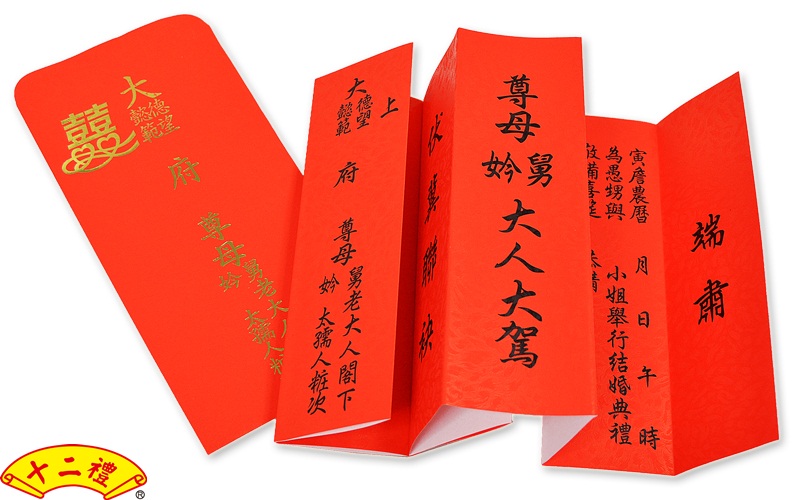 囍
大
德望
懿範
府
尊母
舅老大人
妗 太孺人粧次
上
大
德望
懿範
府
尊母
舅老大人閣下
妗 太孺人粧次
伏冀聯袂
尊母
舅
妗
大人大駕
端肅
寅詹農曆 月 日 午 時
為愚甥與 小姐舉行結婚典禮
敬備喜筵 恭請
十二禮
®